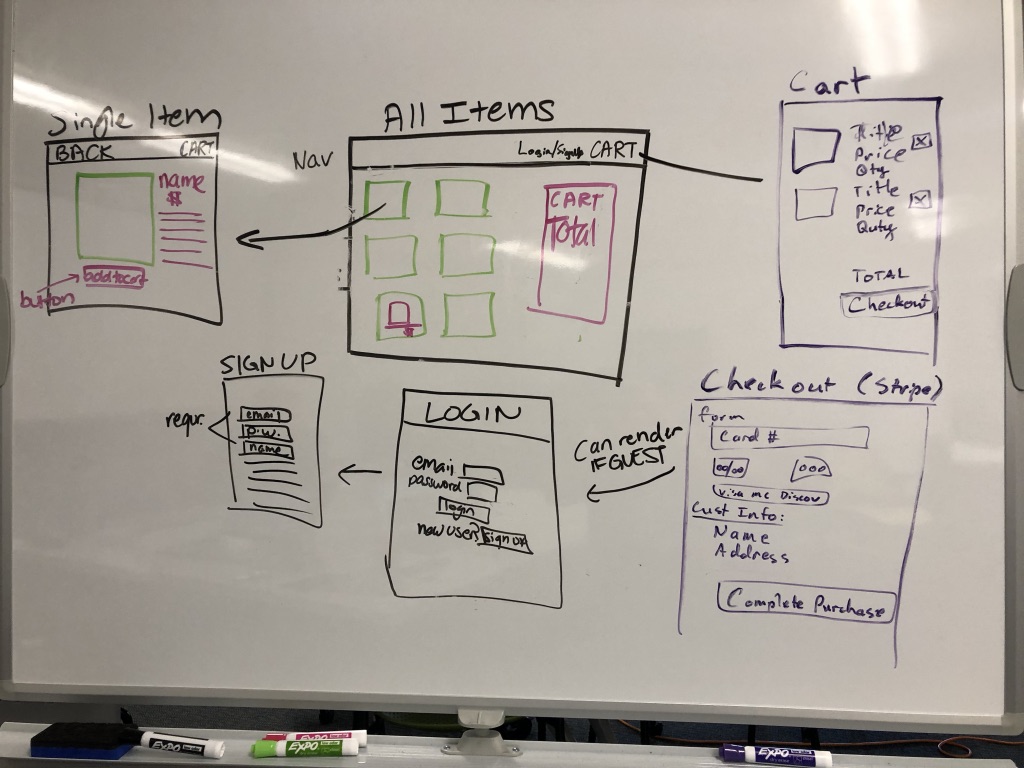 Single Item
BACK CART
name
$
add to cart
button
All Items
Nav
Login/SignUp CART
CART
Total
Cart
Title
Price
Qty
X
Title
Price
Quty
X
TOTAL
Checkout
SIGN UP
requr.
email
p.w.
name
LOGIN
email
password
login
new user? sign up
Can render
IF GUEST
Checkout (Stripe)
form
Card #
00/00 000
Visa mc Discov
Cust Info:
Name
Address
Complete Purchase
EXPO
EXPO
EXPO
EXPO